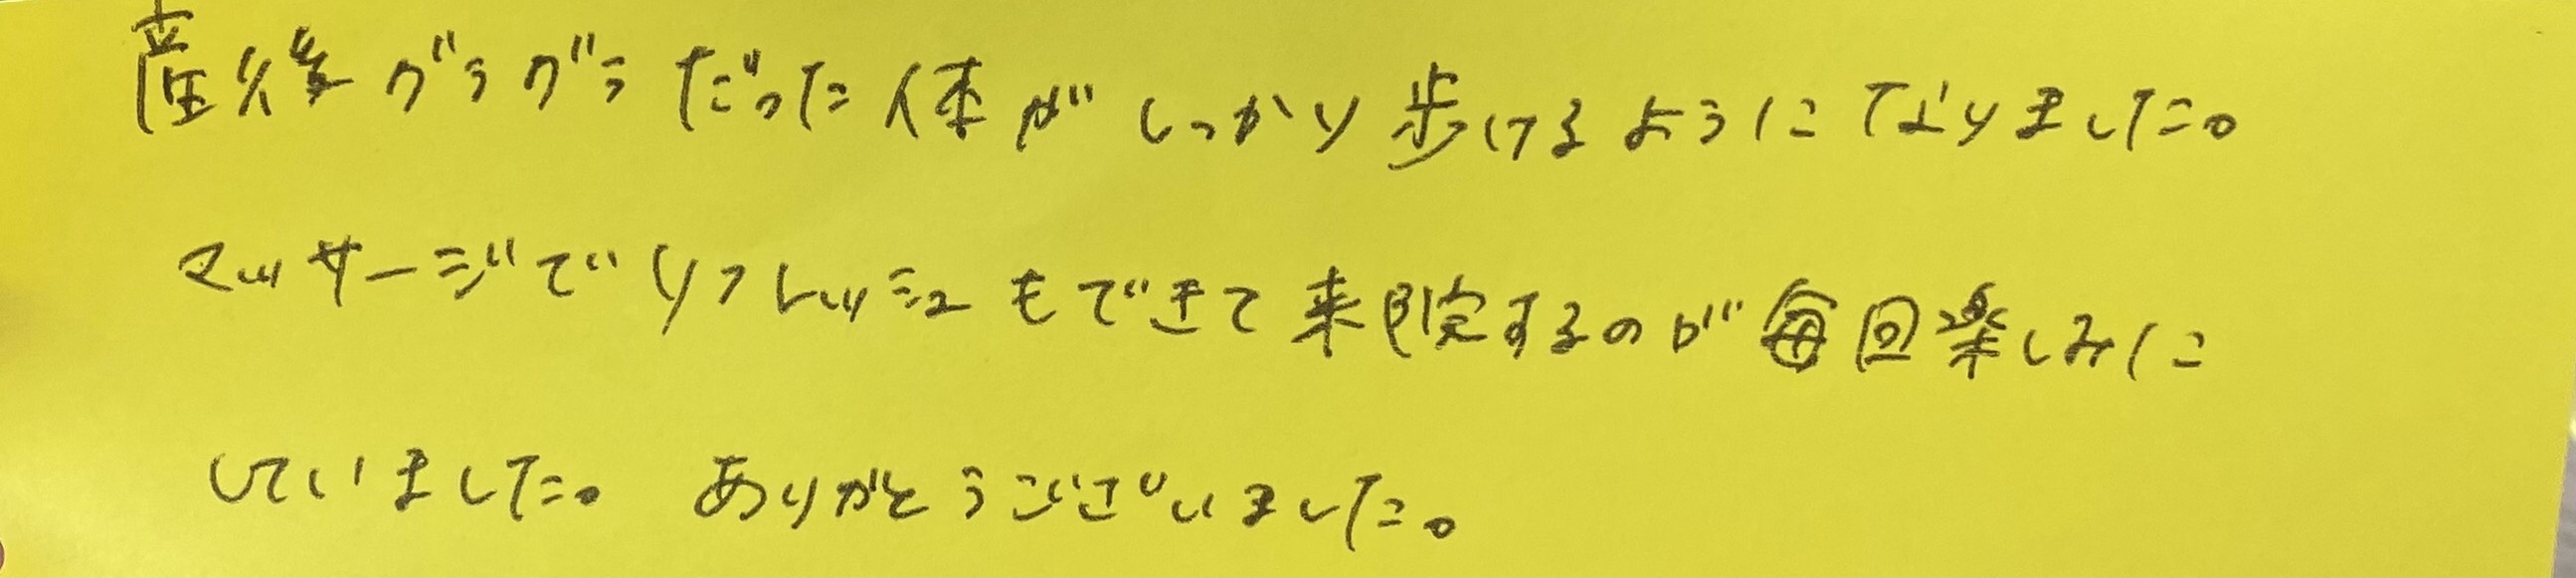 産後グラグラだった体がしっかり歩けるようになりました。
マッサージでリフレッシュもできて来院するのが毎回楽しみに
していました。ありがとうございました。